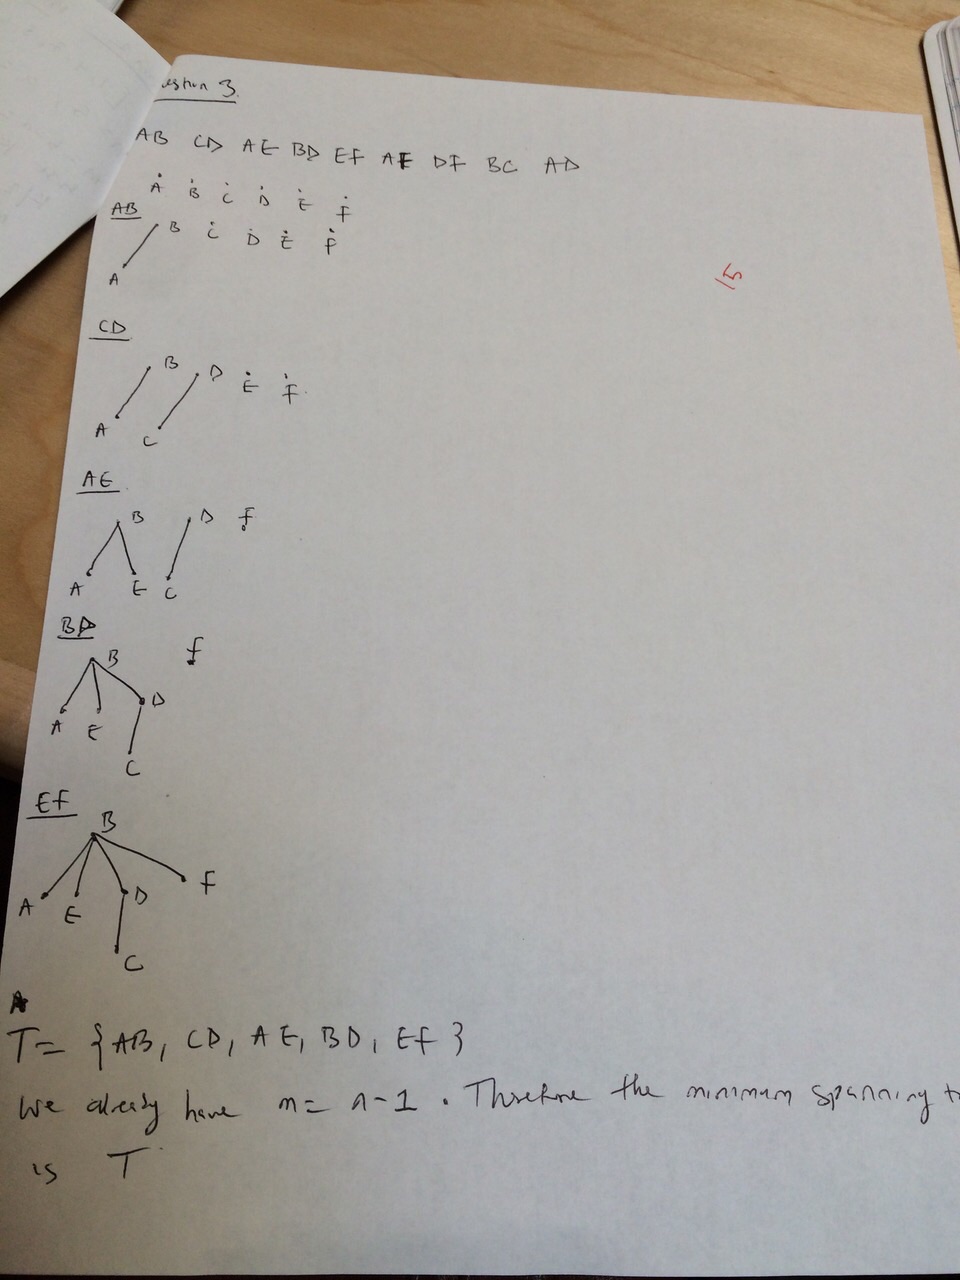 estion 3.
AB CD AE BD EF AF DF BC AD
A B C D E F
AB
B C D E F
A
15
CD
B D E F
A C
AE
B D f
A E C
BD
B f
A E D
C
Ef
B
A E D F
C
T = {AB, CD, AE, BD, Ef}
We already have m = n-1. Therefore the minimum spanning t
is T